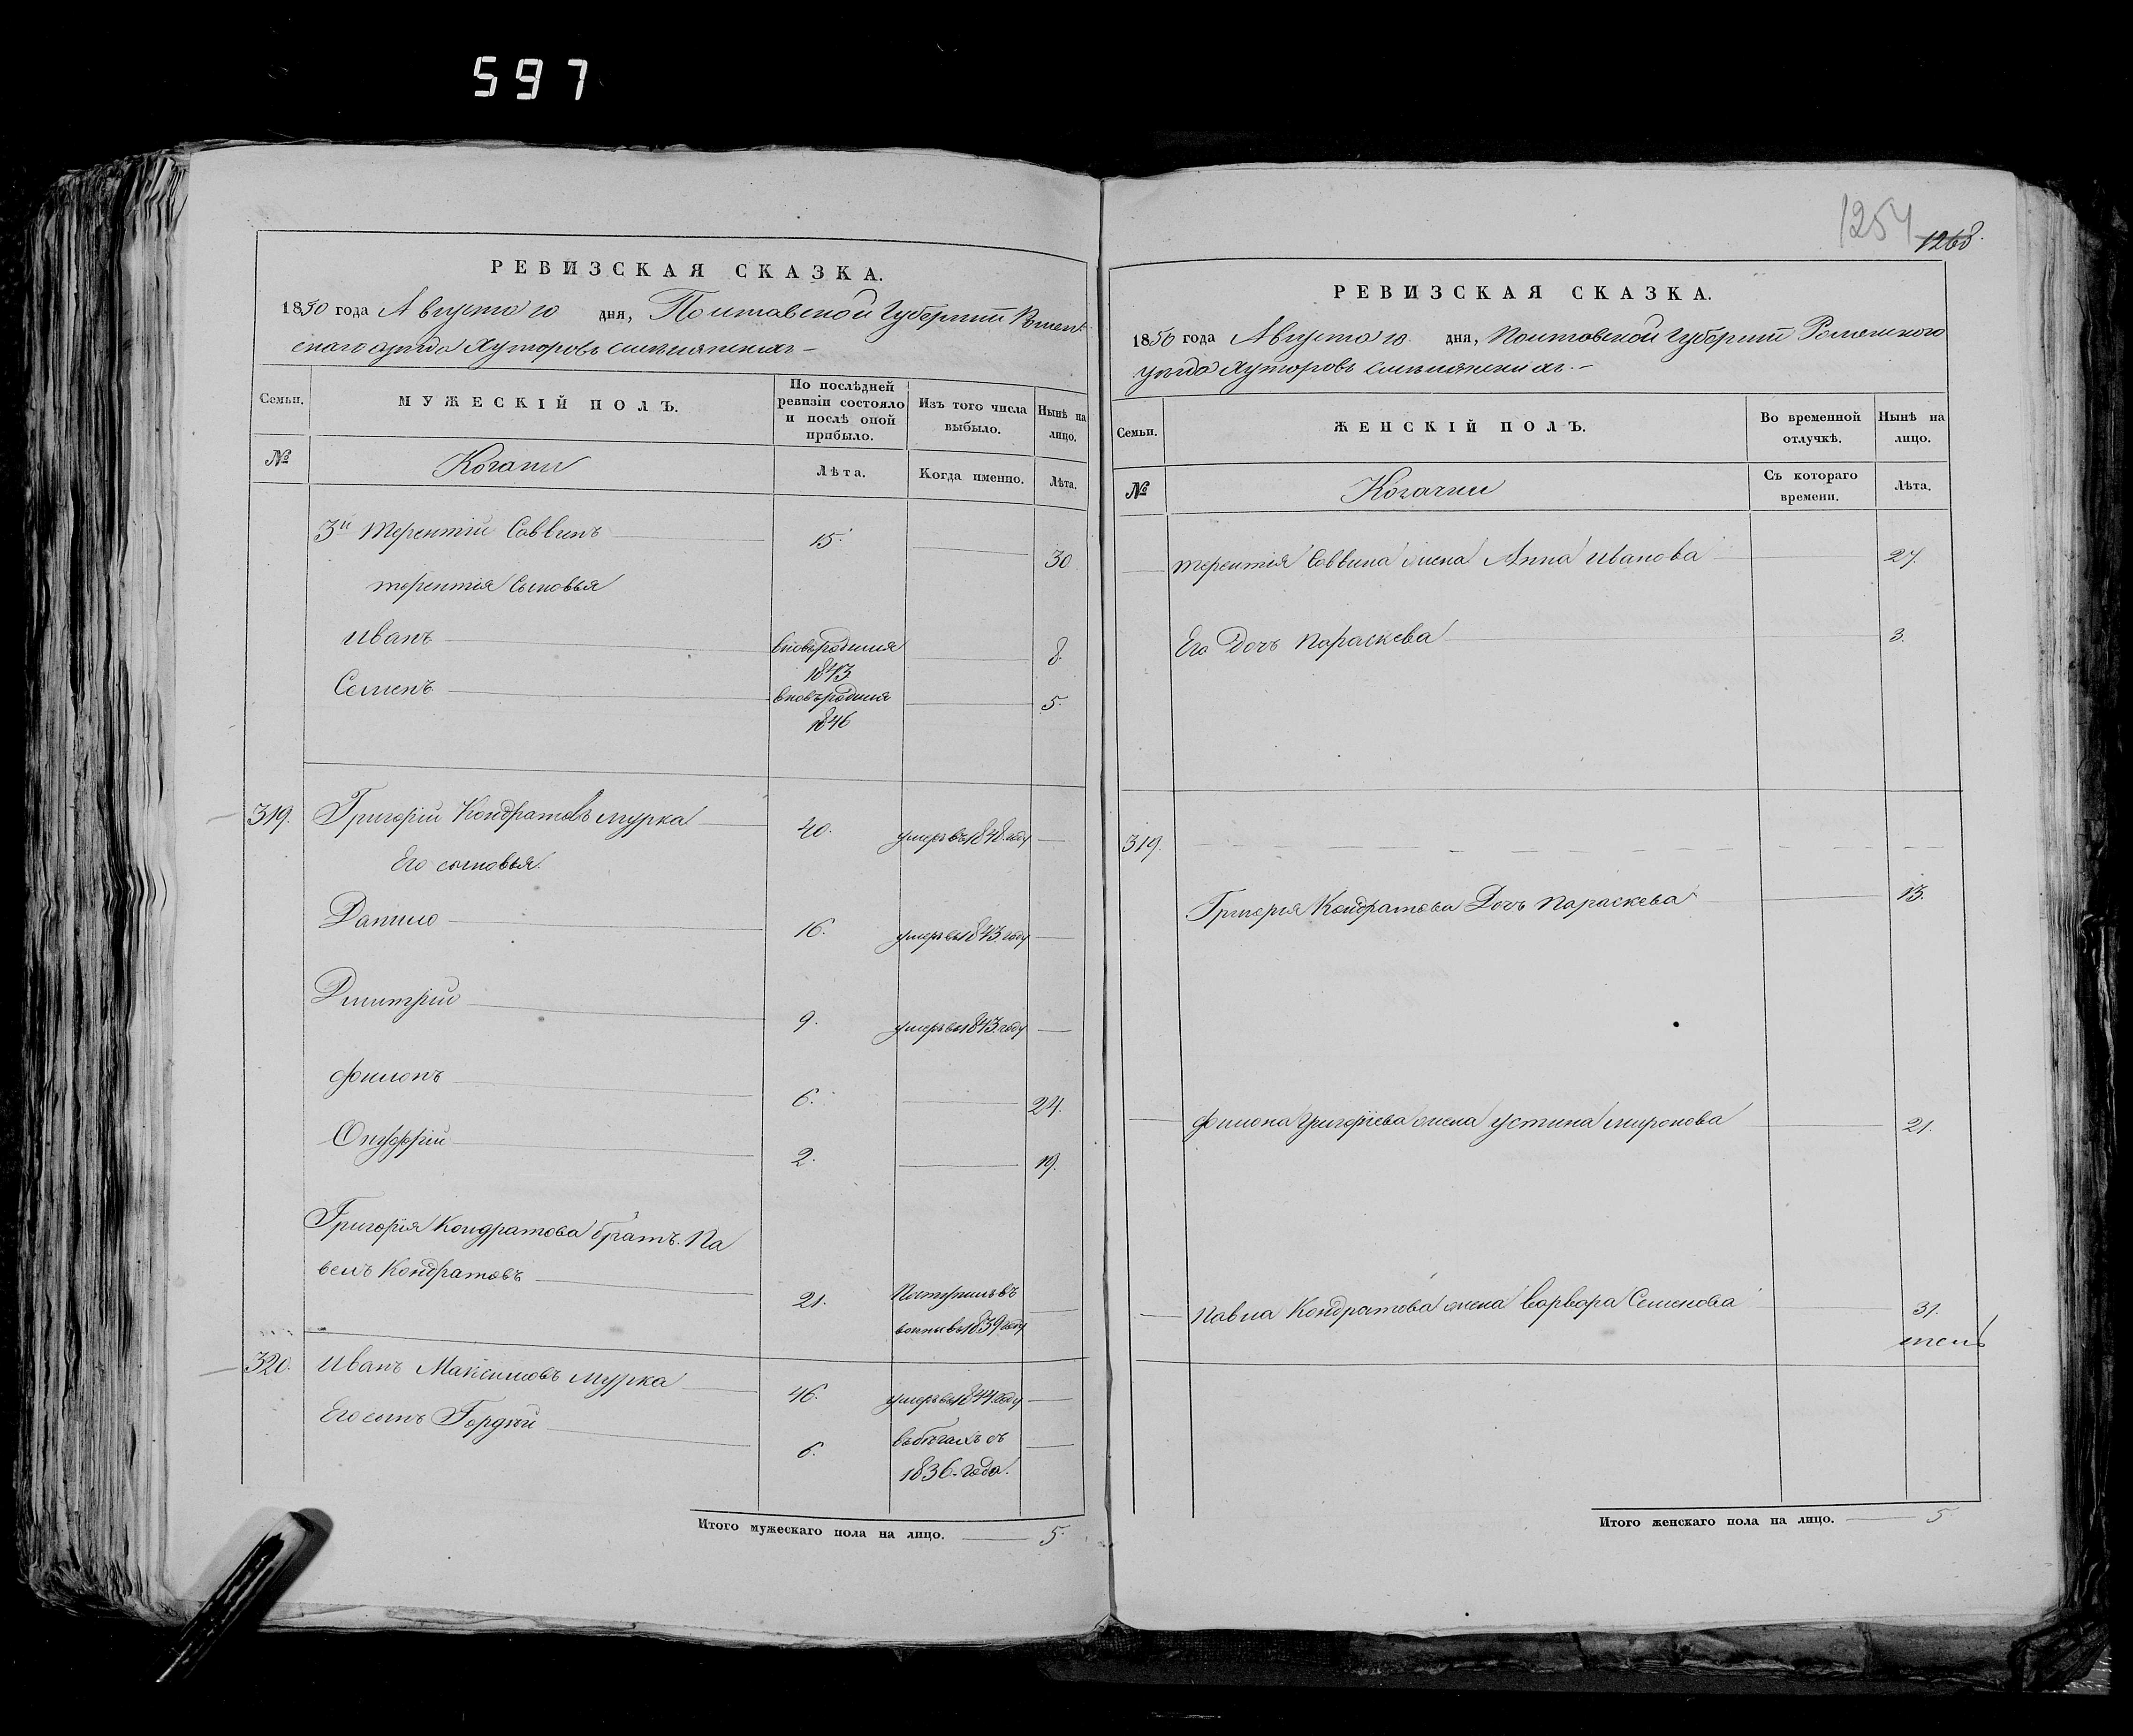 597
РЕВИЗСКАЯ СКАЗКА.
1850 года Августа 10 дня, Полтавской Губернии Ромен
скаго уезда Хуторовъ
Семьи.
МУЖЕСКІЙ ПОЛЪ.
По послѣдней ревизіи состояло и послѣ оной прибыло.
Изъ того числа выбыло.
Нынѣ на лицо.
№
Козаки
Лѣта.
Когда именно.
Лѣта.
3й Терентій Саввинъ 15. 30
Терентія Сыновья
Иванъ вновьродился 8.
1843
Семенъ вновьродился 5.
1846
319. Григорій Кондратовъ Мурка 40. умеръ въ 1848 году
Его сыновья.
Данило 16. умеръ въ 1843 году
Дмитрій 9. умеръ въ 1843 году
Филонъ 6. 24.
Онуфрій 2. 19.
Григорія Кондратова братъ Па
велъ Кондратовъ 21. Поступилъ въ
1839 году
320. Иванъ Максимовъ Мурка 46. умеръ въ 1844 году
Его сынъ Гордѣй 6. въ бѣгахъ съ
1836. года.
Итого мужескаго пола на лицо. 5.
1254
1268.
РЕВИЗСКАЯ СКАЗКА.
1850 года Августа 10 дня, Полтавской Губернии Роменского
уезда Хуторовъ
Семьи.
ЖЕНСКІЙ ПОЛЪ.
Во временной отлучкѣ.
Нынѣ на лицо.
№
Козачки
Съ котораго времени.
Лѣта.
Терентія Саввина жена Анна Иванова 27.
Его Дочь Параскева 3.
319.
Григорія Кондратова Дочь Параскева 13.
Филона Григоріева жена Устина Миронова 21.
Павла Кондратова жена Варвара Семенова 31.
Итого женскаго пола на лицо. 5